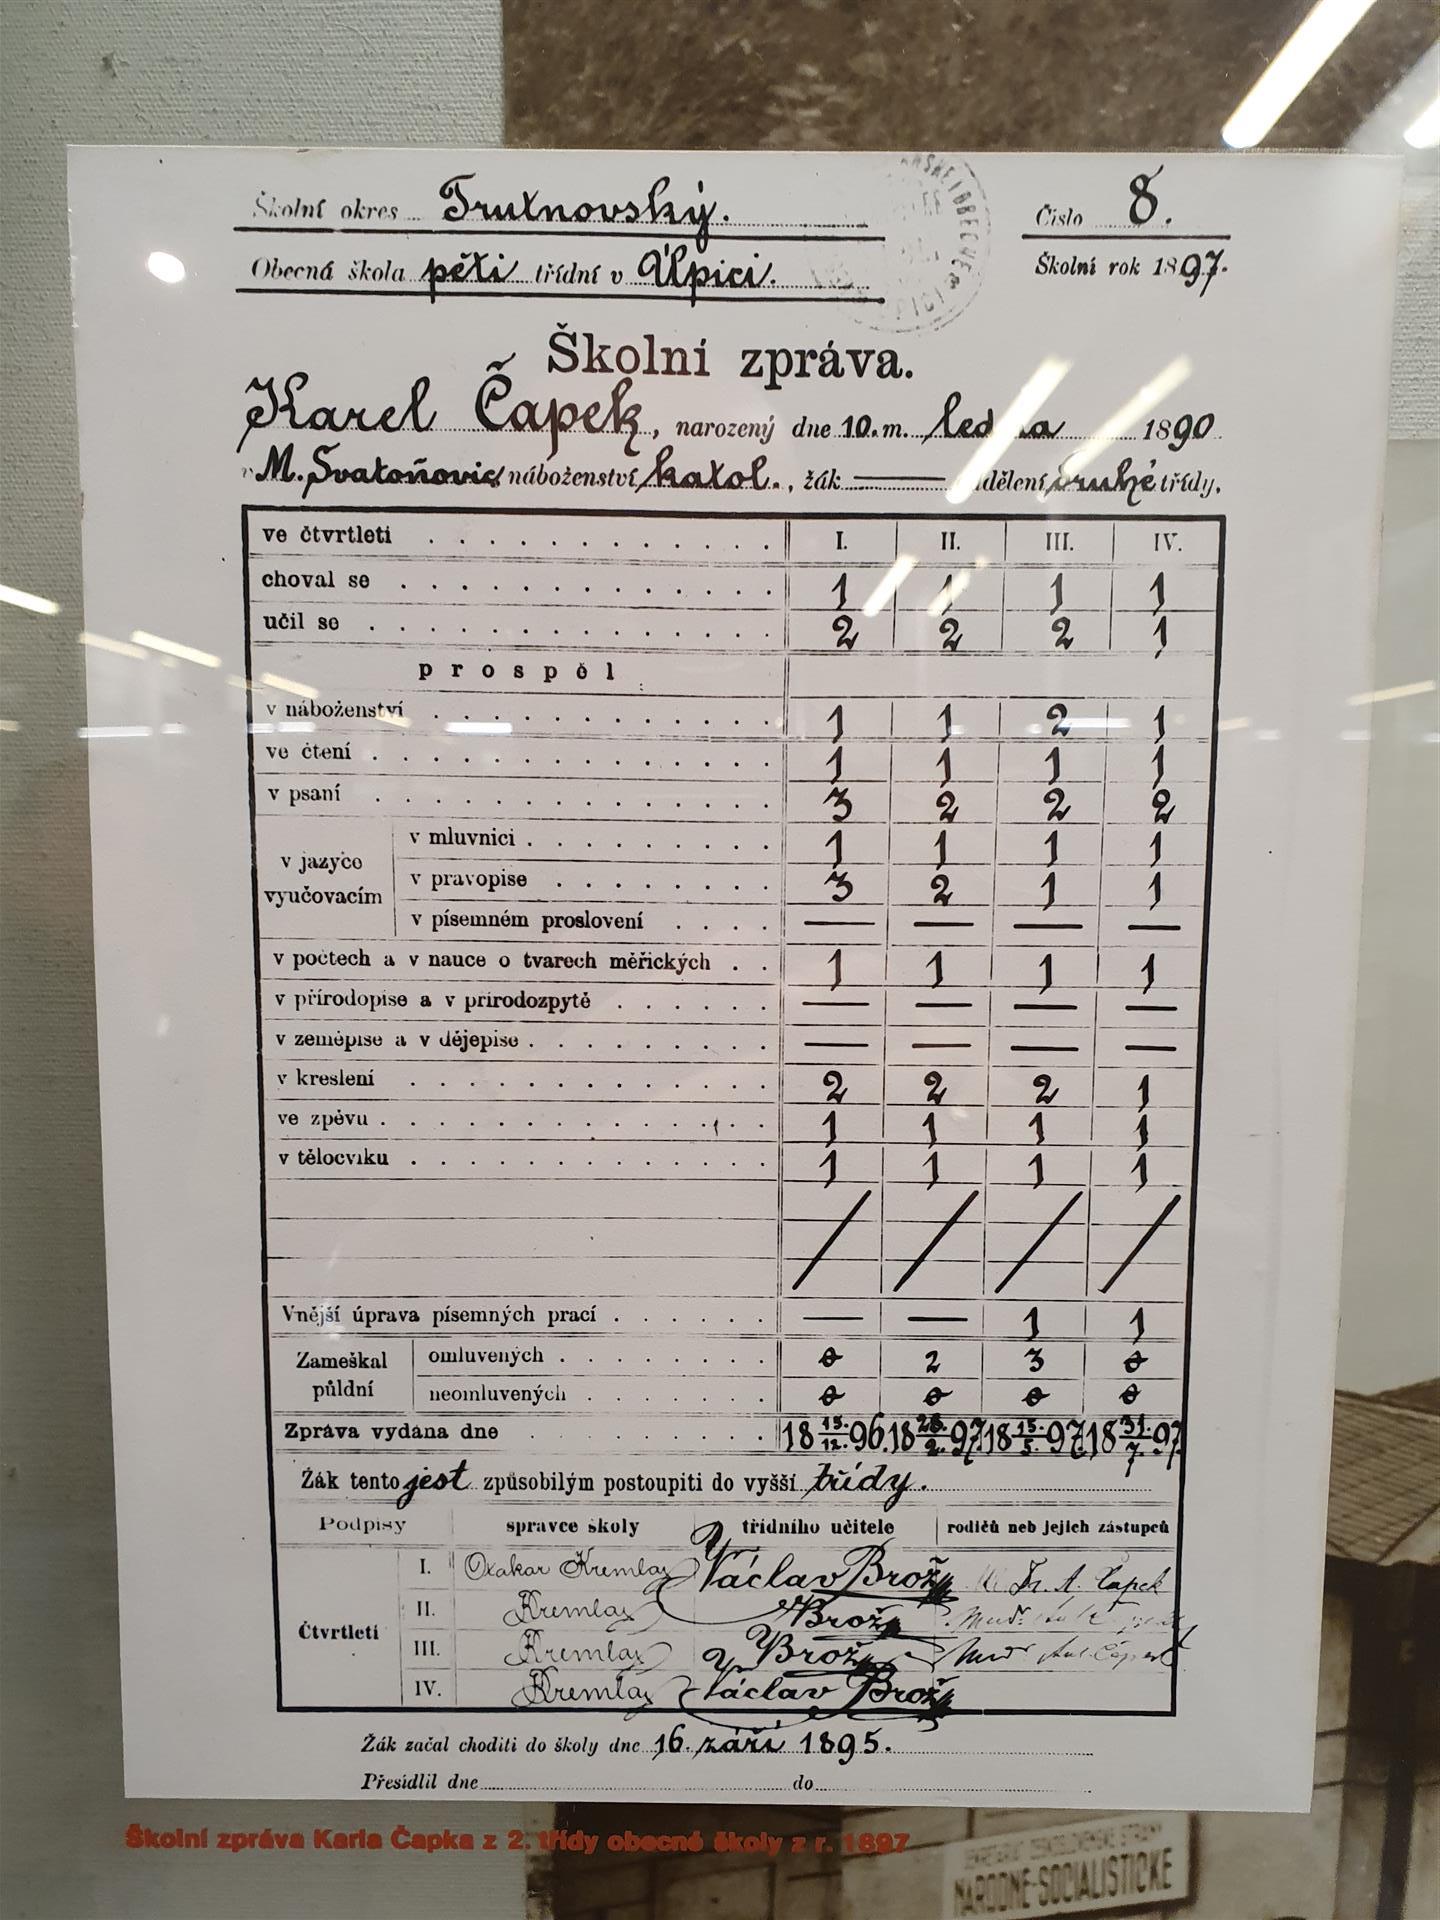 Školní okres Trutnovský. Číslo 8.
Obecná škola pěti třídní v Úpici. Školní rok 1897.
Školní zpráva.
Karel Čapek, narozený dne 10. m. ledna 1890
v M. Svatoňovic náboženství katol., žák — oddělení druhé třídy,
ve čtvrtletí I. II. III. IV.
choval se 1 1 1 1
učil se 2 2 2 1
prospěl
v náboženství 1 1 2 1
ve čtení 1 1 1 1
v psaní 3 2 2 2
v jazyce vyučovacím
v mluvnici 1 1 1 1
v pravopise 3 2 1 1
v písemném proslovení — — — —
v počtech a v nauce o tvarech měřických 1 1 1 1
v přírodopise a v přírodozpytě — — — —
v zeměpise a v dějepise — — — —
v kreslení 2 2 2 1
ve zpěvu 1 1 1 1
v tělocviku 1 1 1 1
Vnější úprava písemných prací — — 1 1
Zameškal půldní
omluvených 0 2 3 0
neomluvených 0 0 0 0
Zpráva vydána dne 18 15./12. 96. 18 28./2. 97 18 15./5. 97. 18 31./7. 97.
Žák tento jest způsobilým postoupiti do vyšší třídy.
Podpisy správce školy třídního učitele rodičů neb jejich zástupců
Čtvrtletí
I. Otakar Kremlax Václav Brož Čapek
II. Kremlax Brož
III. Kremlax Brož MUDr Ant. Čapek
IV. Kremlax Václav Brož
Žák začal choditi do školy dne 16. září 1895.
Přesídlil dne do
Školní zpráva Karla Čapka z 2. třídy obecné školy z r. 1897
NÁRODNĚ-SOCIALISTICKÉ